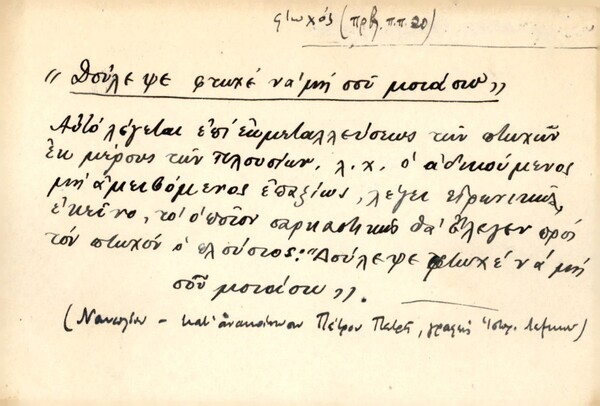 φτωχός (πρβ. π.π. 20)
« Δούλεψε φτωχέ νά μή σοῦ μοιάσω »
Αὐτό λέγεται ἐπί ἐκμεταλλεύσεως τῶν πτωχῶν
ἐκ μέρους τῶν πλουσίων. λ.χ. ὁ ἀδικούμενος
μή ἀμειβόμενος ἐπαξίως, λέγει εἰρωνικῶς,
ἐκεῖνο, τό ὁποῖον σαρκαστικῶς θά ἔλεγεν πρός
τόν πτωχόν ὁ πλούσιος: "Δούλεψε φτωχέ νά μή
σοῦ μοιάσω ».
( – κατ' ἀνακοίνωσιν Πέτρου γραφεῖς Ἱστορ. Λεξικοῦ)